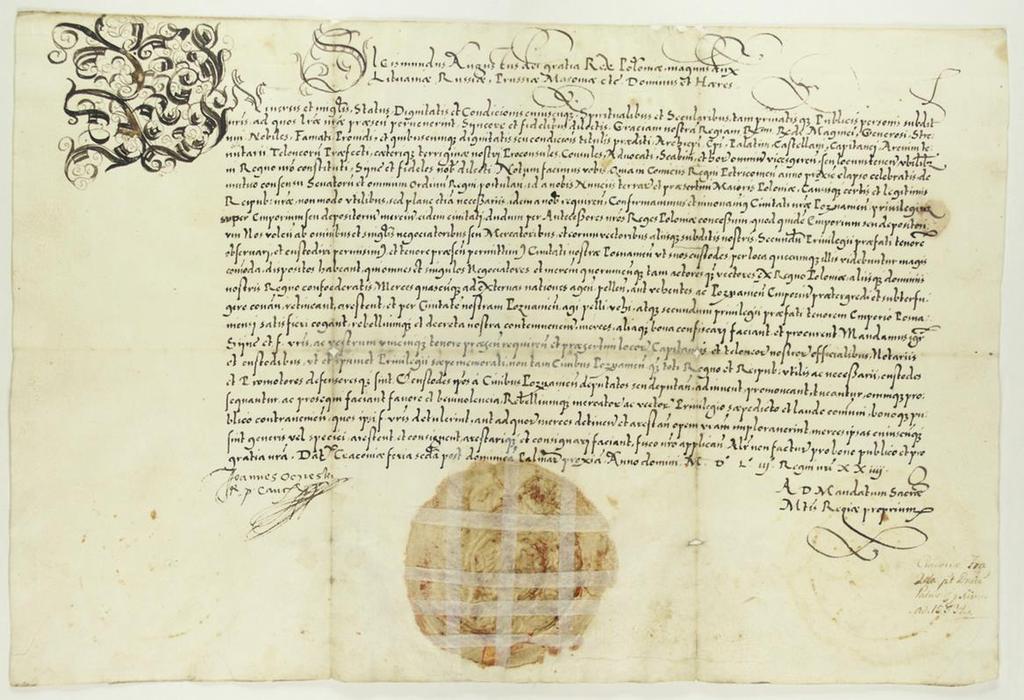 Sigismundus Augustus dei gratia Rex Poloniæ, magnus Dux
Lituaniæ Russiæ, Prussiæ Masoviæ etc Dominus et Hæres.
Universis et singlis, Status Dignitatis et Condicionis cuiuscunque, Spiritualibus et Secularibus, tam privatis qz Publicis personis subdit
uris, ad quos præsen pervenerint, Syncere et fidelibus dilectis, Graciam nostra Regiam Rmi Rndi Magnifici, Generosi, Stre
nui, Nobiles, Famati Providi, et quibuscunque dignitatis seu condicionis titulis præditi, Archiepi Epi, Palatini, Castellani, Capitanei, Arcium te
nutarii Teloneorum Præfecti, cæterique terrigenæ nostri Proconsules, Consules, Advocati, Scabini, et horum omnium vicesgeren, seu locumtenen ubilibet
in Regno nro constituti, Syncere et fideles nobis dilecti. Notum facimus vobis, Quia in Comiciis Regni Petricovien anno proxime elapso celebratis de
mutuo consensu Senatorum et omnium Ordinum Regni, postulan, id a nobis Nunciis terrarum et præsertim Maioris Poloniæ, Causisque certis et legitimis
Reipub: uræ non modo utilibus, sed plane etiam necessariis, idem a nob requiren, Confirmavimus et innovavimus Civitati nræ Poznanien, privilegium
super Emporium seu depositorium mercium eidem civitati dudum per Antecessores nros Reges Poloniæ concessum, quod quidem Emporium seu depositori
um Nos volen ab omnibus et singlis negociatoribus seu Mercatoribus, et eorum vectoribus aliisque subditis nostris, Secundum Privilegii præfati tenore
observari, et custodiri permisimus et tenore præsen permittimus Civitati nostræ Posnanien ut suos custodes per loca quæcunque illis videbuntur magis
comoda, dispositos habeant, qui omnes et singulos Negociatores et mercium quorumcunque tam actores qz vectores Ex Regno Poloniæ, aliisque dominiis
nostris Regno confœderatis Merces quascunque ad Externas nationes agen, pellen, aut vehentes, ac Poznanien Emporium prætergredi et subterfu
gere conan, retineant, arestent, et per Civitatem nostram Poznanien, agi pelli vehi, atque secundum privilegii præfati tenorem Emporio Pozna
nien satisfieri cogant, rebelliumque et decreta nostra contemnencium, merces, aliaque bona confiscari faciant et procurent Mandamus igr
Syne et f. vris, ac vestrum unicuique tenore præsen requiren et præsertim locorum Capitaneis et teloneorum nostrorum officialibus, Notariis
et custodibus, ut et ipsimet Privilegii sæpememorati, non tam Civibus Poznanien, qz toti Regno et Reipub: utilis ac necessarii, custodes
et Promotores defensoresque sint, Custodes ipsos a Civibus Poznanien deputatos seu deputan, adiuvent, promoveant, tueantur, omnique pro
sequantur, ac prosequi faciant favore et benivolencia, Rebelliumque mercatorum ac vectorum Privilegio sæpedicto et laudo communi, bonoque pu
blico contravenien, quos ipsi f. vris detulerint, aut ad quorum merces detinen et arestan opem vram imploraverint, merces ipsas cuiuscunque
sint generis vel speciei, arestent, et consignent, arestarique et consignari faciant, fisco nro applican. Alr non factur pro bono publico et pro
gratia nra. Dat Cracoviæ feria secda post dominicam Palmarum proxima Anno domini. M. D. L. iii. Regni nri XXiiii.
Joannes Ocyeski
R. P. Canc
AD Mandatum Sacræ
Mtis Regiæ proprium